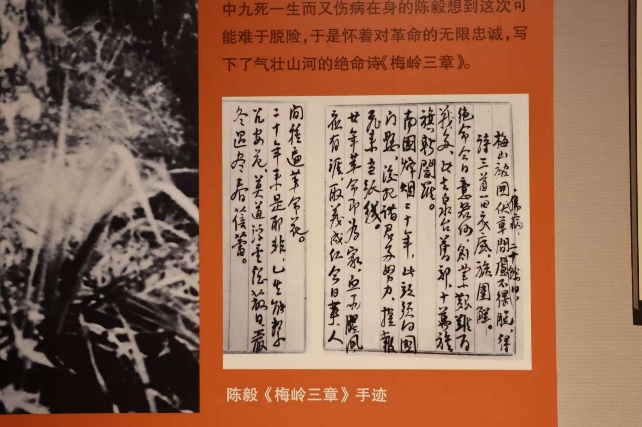 中九死一生而又伤病在身的陈毅想到这次可
能难于脱险，于是怀着对革命的无限忠诚，写
下了气壮山河的绝命诗《梅岭三章》。
梅山被围伏草间虑不得脱，得
伤病，二十余日，
诗三首留衣底。旋围解。
绝命今日意若何，创业艰难百
战多，此去泉台旧部，十万旌
旗斩阎罗。
南国烽烟二十年，此头须向国
门悬，后死诸君多努力，捷报
飞来当纸钱。
廿年革命即为家，血雨腥风
应有涯，取义成仁今日事，人
间遍革命花。
二十年来是耶非，一生
莫道浮云终蔽日，严
冬过尽春蓓蕾。
陈毅《梅岭三章》手迹